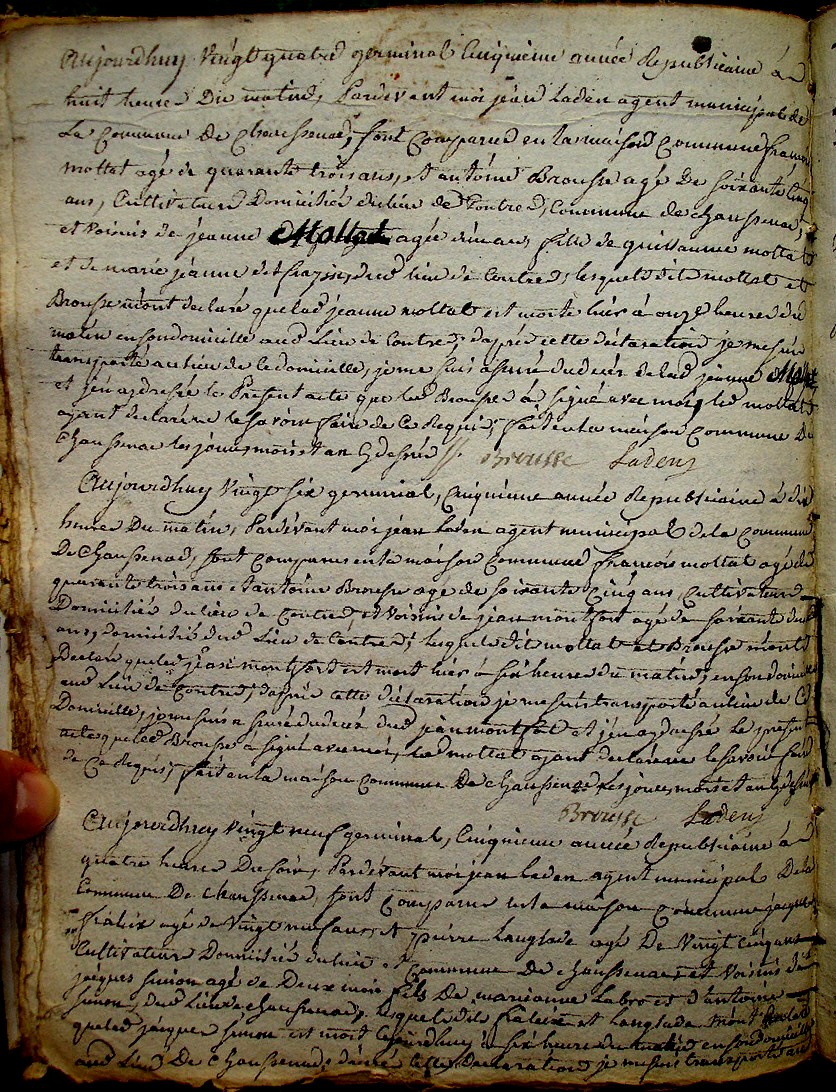 Aujourdhuy vingt quatre germinal Cinquieme année Republicaine à
huit heures Du matin, Pardevant moi jean Laden agent municipal de
La Commune De Chaussenac, sont Comparus en la maison Commune francois
mottat agé de quarante trois ans, et antoine Brousse agé De soixante Cinq
ans, Cultivateurs Domiciliés du lieu de Contres, Commune de chaussenac,
et voisins de jeanne Mottat agée ans, fille de guillaume mottat
et de marie jeanne dud lieu de Contres, lesquels dits mottat et
Brousse mont declaré quelad jeanne mottat est morte hier à onze heures du
matin en son domicille aud Lieu de Contres, daprès cette déclaration je me suis
transporté au lieu de ce domicille, je me suis assuré du decès delad jeanne Mottat
et jen ay dressé le Present acte que led Brousse à signé avec moi, led mottat
ayant declaré ne le savoir faire de Ce Requis, fait en la maison Commune De
Chaussenac les jours mois et an
Brousse Laden
Aujourdhuy vingt six germinal, Cinquieme année Republicaine à dix
heures Du matin, Pardevant moi jean Laden agent municipal de la Commune
De Chaussenac, sont Comparus en la maison Commune francois mottat agé de
quarante trois ans et antoine Brousse agé de soixante Cinq ans, Cultivateurs
Domiciliés du lieu de Contres, et voisins de jean montfort agé de soixante
ans, domicilié dud Lieu de Contres, lesquels dit mottat et Brousse mont
Declaré queled jean montfort est mort hier à six heures du matin, en son domicille
aud Lieu de Contres, daprès cette déclaration je me suis transporté au lieu de Ce
Domicille, je me suis assuré du decès dud jean montfort et jen ay dressé le present
acte que led Brousse a signé avec moi, led mottat ayant declaré ne le savoir faire
de Ce Requis, fait en la maison Commune De chaussenac les jours mois et an
Brousse Laden
Aujourdhuy vingt neuf germinal, Cinquieme année Republicaine à
quatre heures Du soir, Pardevant moi jean Laden agent municipal De la
Commune De Chaussenac, sont Comparus en la maison Commune jacques
agé de vingt neuf ans, et pierre Langlade agé De vingt Cinq ans
Cultivateurs Domiciliés du lieu et Commune de chaussenac et voisins de
jacques simon agé de Deux mois fils De marianne Labro et d'antoine
simon, dud Lieu de chaussenac, lesquels dit et Langlade mont declaré
queled jacques simon est mort cejourdhuy à six heures du matin en son domicille
aud Lieu De Chaussenac, daprès cette declaration je me suis transporté au